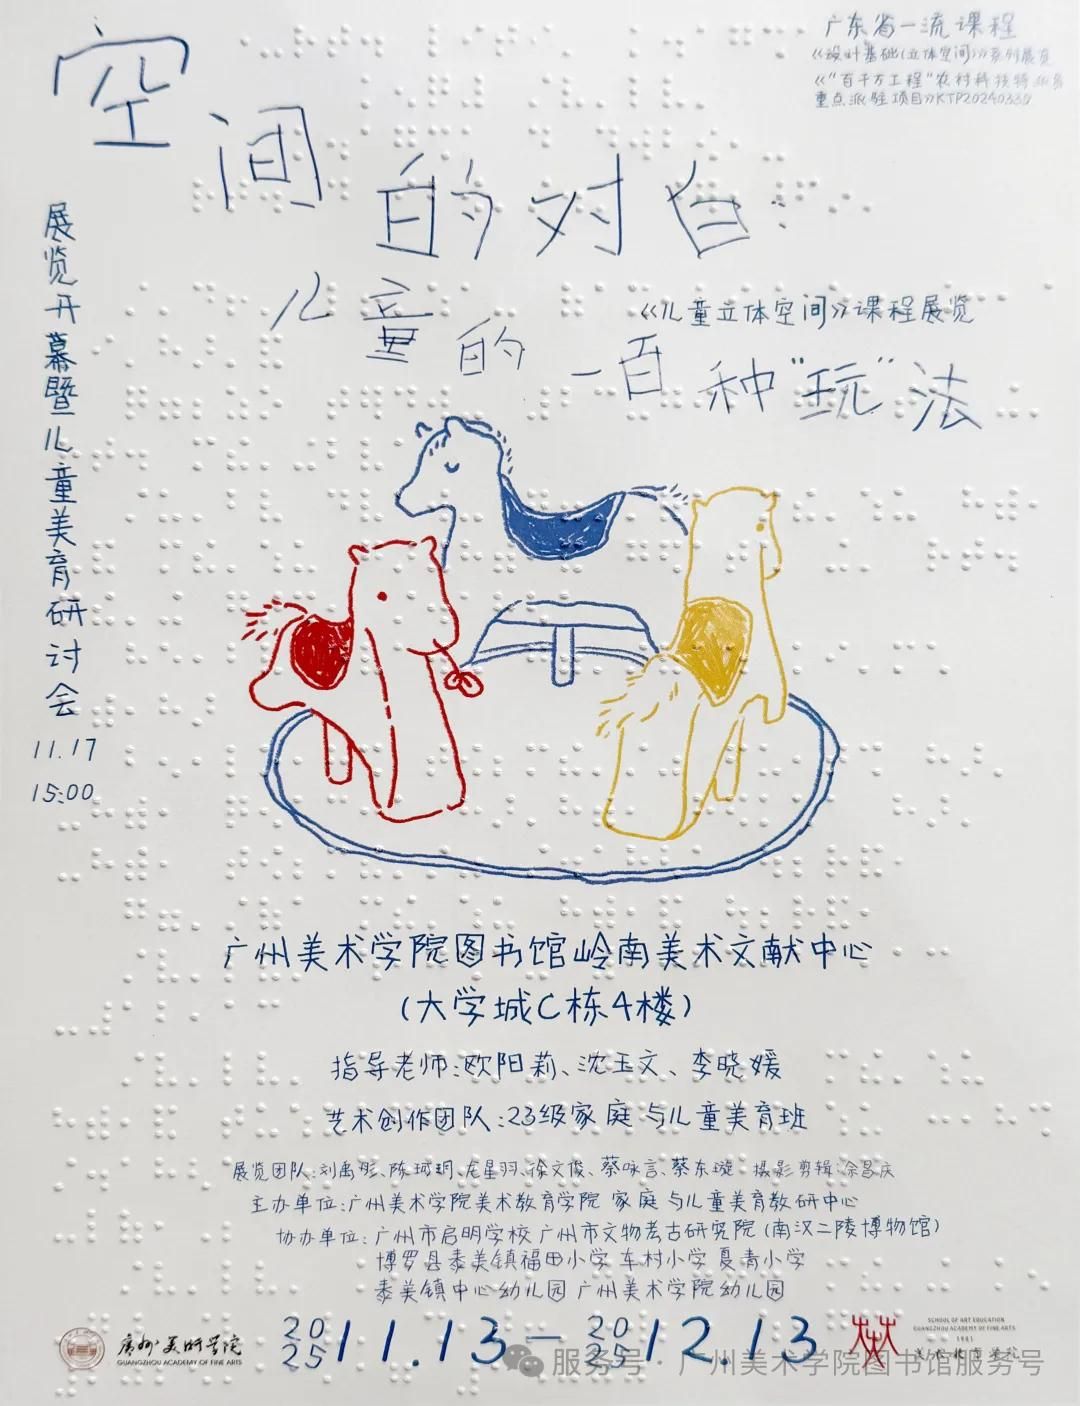 广东省一流课程
《设计基础(立体空间)》系列展览
《"百千万工程"农村科技特派员
重点派驻项目》KTP20240330
空间的对白：
《儿童立体空间》课程展览
儿童的一百种"玩"法
展览开幕暨儿童美育研讨会
11.17
15:00
广州美术学院图书馆岭南美术文献中心
(大学城C栋4楼)
指导老师:欧阳莉、沈玉文、李晓媛
艺术创作团队:23级家庭与儿童美育班
展览团队:刘禹彤、陈珹玥、龙星羽、徐文俊、蔡咏言、蔡东璇 摄影剪辑:余昌庆
主办单位:广州美术学院美术教育学院 家庭与儿童美育教研中心
协办单位:广州市启明学校 广州市文物考古研究院(南汉二陵博物馆)
博罗县泰美镇福田小学 车村小学 夏青小学
泰美镇中心幼儿园 广州美术学院幼儿园
广州美术学院
GUANGZHOU ACADEMY OF FINE ARTS
2025 11.13—2025 12.13
SCHOOL OF ART EDUCATION
GUANGZHOU ACADEMY OF FINE ARTS
1981
服务号·广州美术学院图书馆服务号